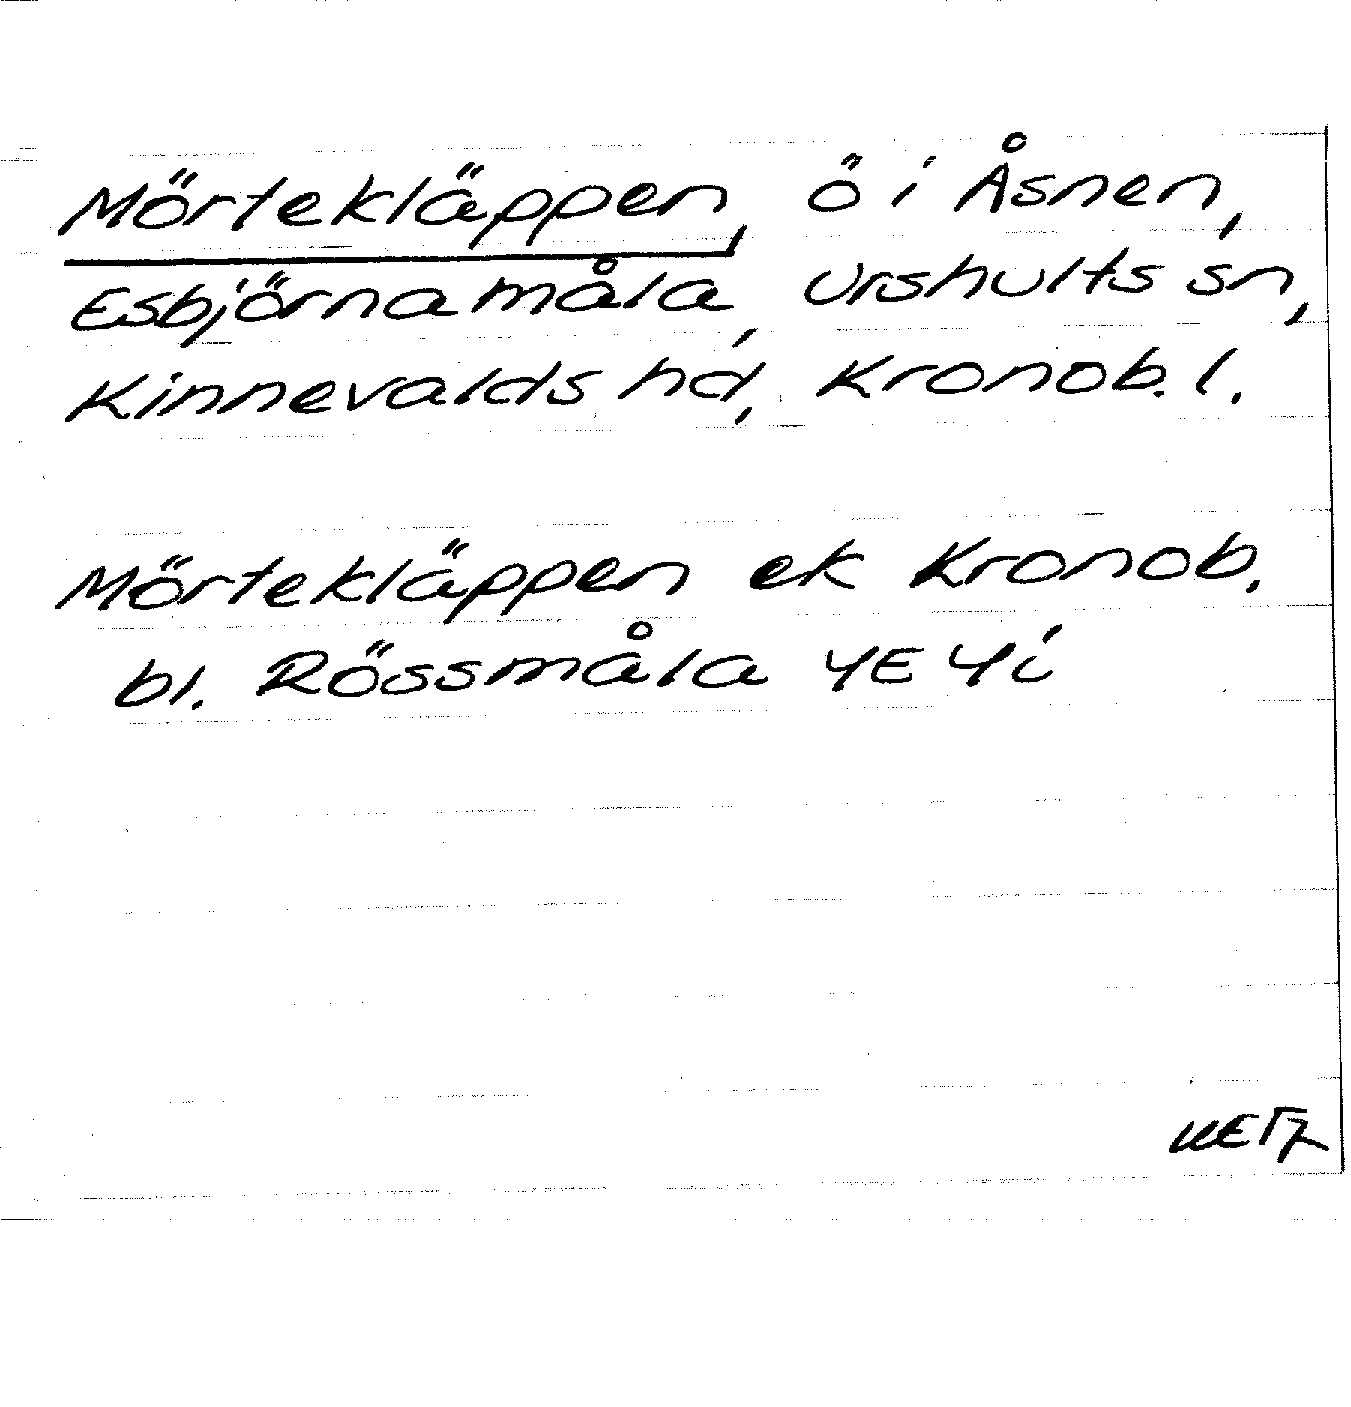 Mörtekläppen, ö i Åsnen,
Esbjörnamåla, Urshults sn,
Kinnevalds hd, Kronob. l.
Mörtekläppen ek Kronob.
bl. Rössmåla 4E 4i